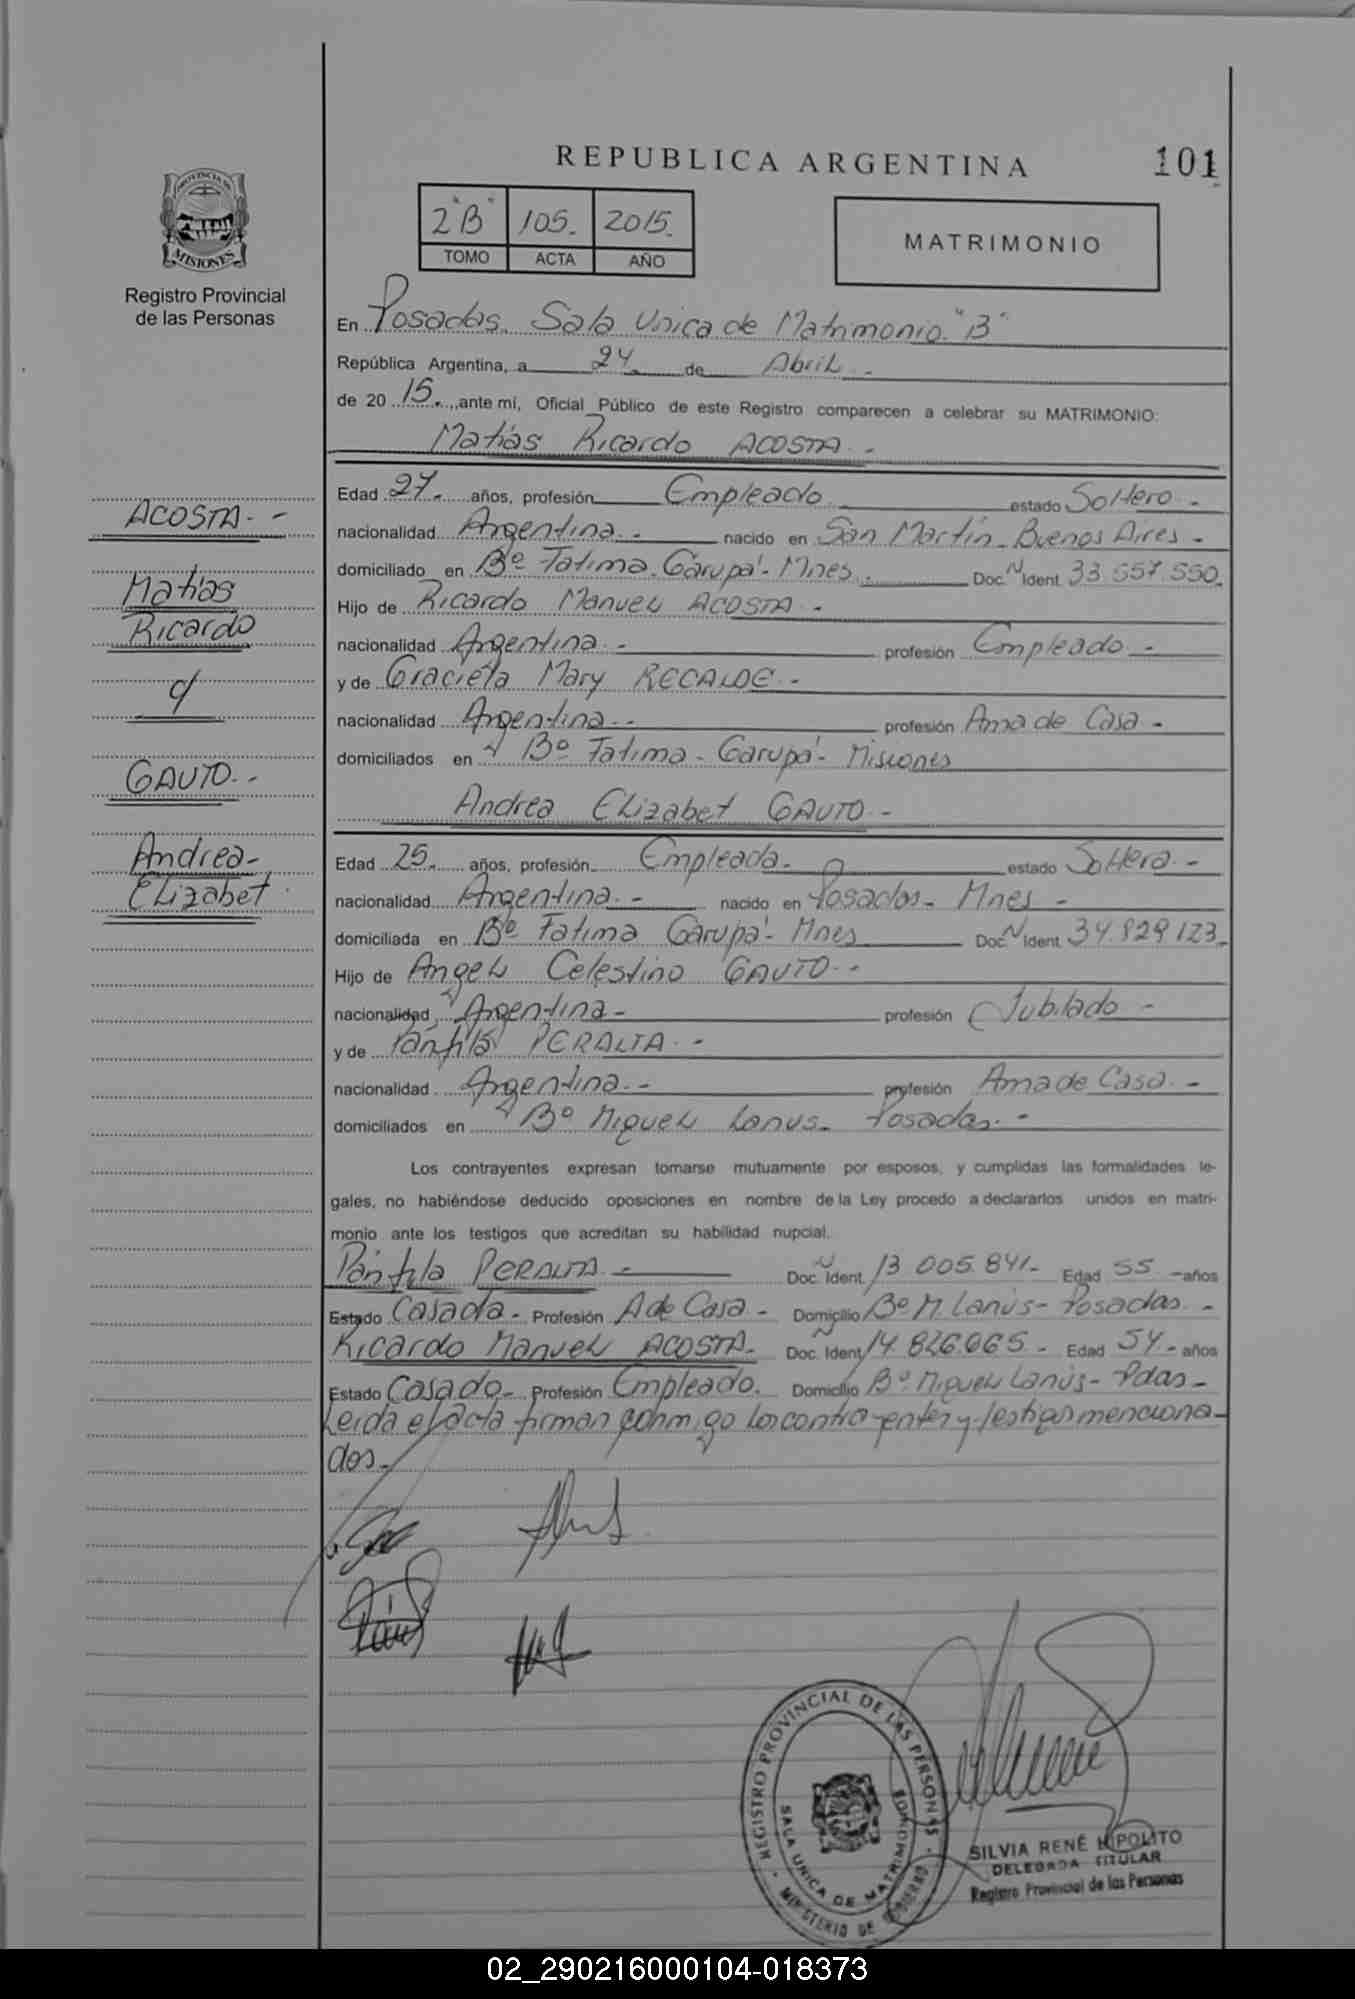 REPUBLICA ARGENTINA
101
2"B" 105. 2015.
TOMO ACTA AÑO
MATRIMONIO
PROVINCIA DE
MISIONES
Registro Provincial
de las Personas
En Posadas. Sala Unica de Matrimonio. "B"
República Argentina, a 24. de Abril -
de 20 15. ,ante mí, Oficial Público de este Registro comparecen a celebrar su MATRIMONIO:
Matías Ricardo ACOSTA -
Edad 27. años, profesión Empleado estado Soltero -
nacionalidad Argentina. - nacido en San Martín - Buenos Aires -
domiciliado en Bº Fatima. Garupá - Mnes. Doc. N Ident 33.557.550.
Hijo de Ricardo Manuel ACOSTA -
nacionalidad Argentina. - profesión Empleado -
y de Graciela Mary RECALDE -
nacionalidad Argentina - profesión Ama de Casa -
domiciliados en Bº Fatima - Garupá - Misiones
Andrea Elizabet GAUTO -
Edad 25. años, profesión Empleada. estado Soltera -
nacionalidad Argentina. - nacido en Posadas - Mnes -
domiciliada en Bº Fatima Garupá - Mnes Doc. N Ident 34.829.123.
Hijo de Angel Celestino GAUTO -
nacionalidad Argentina - profesión Jubilado -
y de Pánfila PERALTA -
nacionalidad Argentina. - profesión Ama de Casa. -
domiciliados en Bº Miguel Lanus - Posadas. -
Los contrayentes expresan tomarse mutuamente por esposos, y cumplidas las formalidades le-
gales, no habiéndose deducido oposiciones en nombre de la Ley procedo a declararlos unidos en matri-
monio ante los testigos que acreditan su habilidad nupcial.
Pánfila PERALTA - Doc. N Ident. 13.005.841 - Edad 55 - años
Estado Casada - Profesión A de Casa - Domicilio Bº M. Lanús - Posadas -
Ricardo Manuel ACOSTA. Doc. N Ident 14.826.065. - Edad 54. - años
Estado Casado - Profesión Empleado. Domicilio Bº Miguel Lanús - Pdas -
Leída el acta firman conmigo los contrayentes y testigos menciona-
dos.-
ACOSTA. -
Matías
Ricardo
c/
GAUTO. -
Andrea -
Elizabet
REGISTRO PROVINCIAL DE LAS PERSONAS
SALA UNICA DE MATRIMONIO
MINISTERIO DE GOBIERNO
SILVIA RENÉ HIPOLITO
DELEGADA TITULAR
Registro Provincial de las Personas
02_290216000104-018373